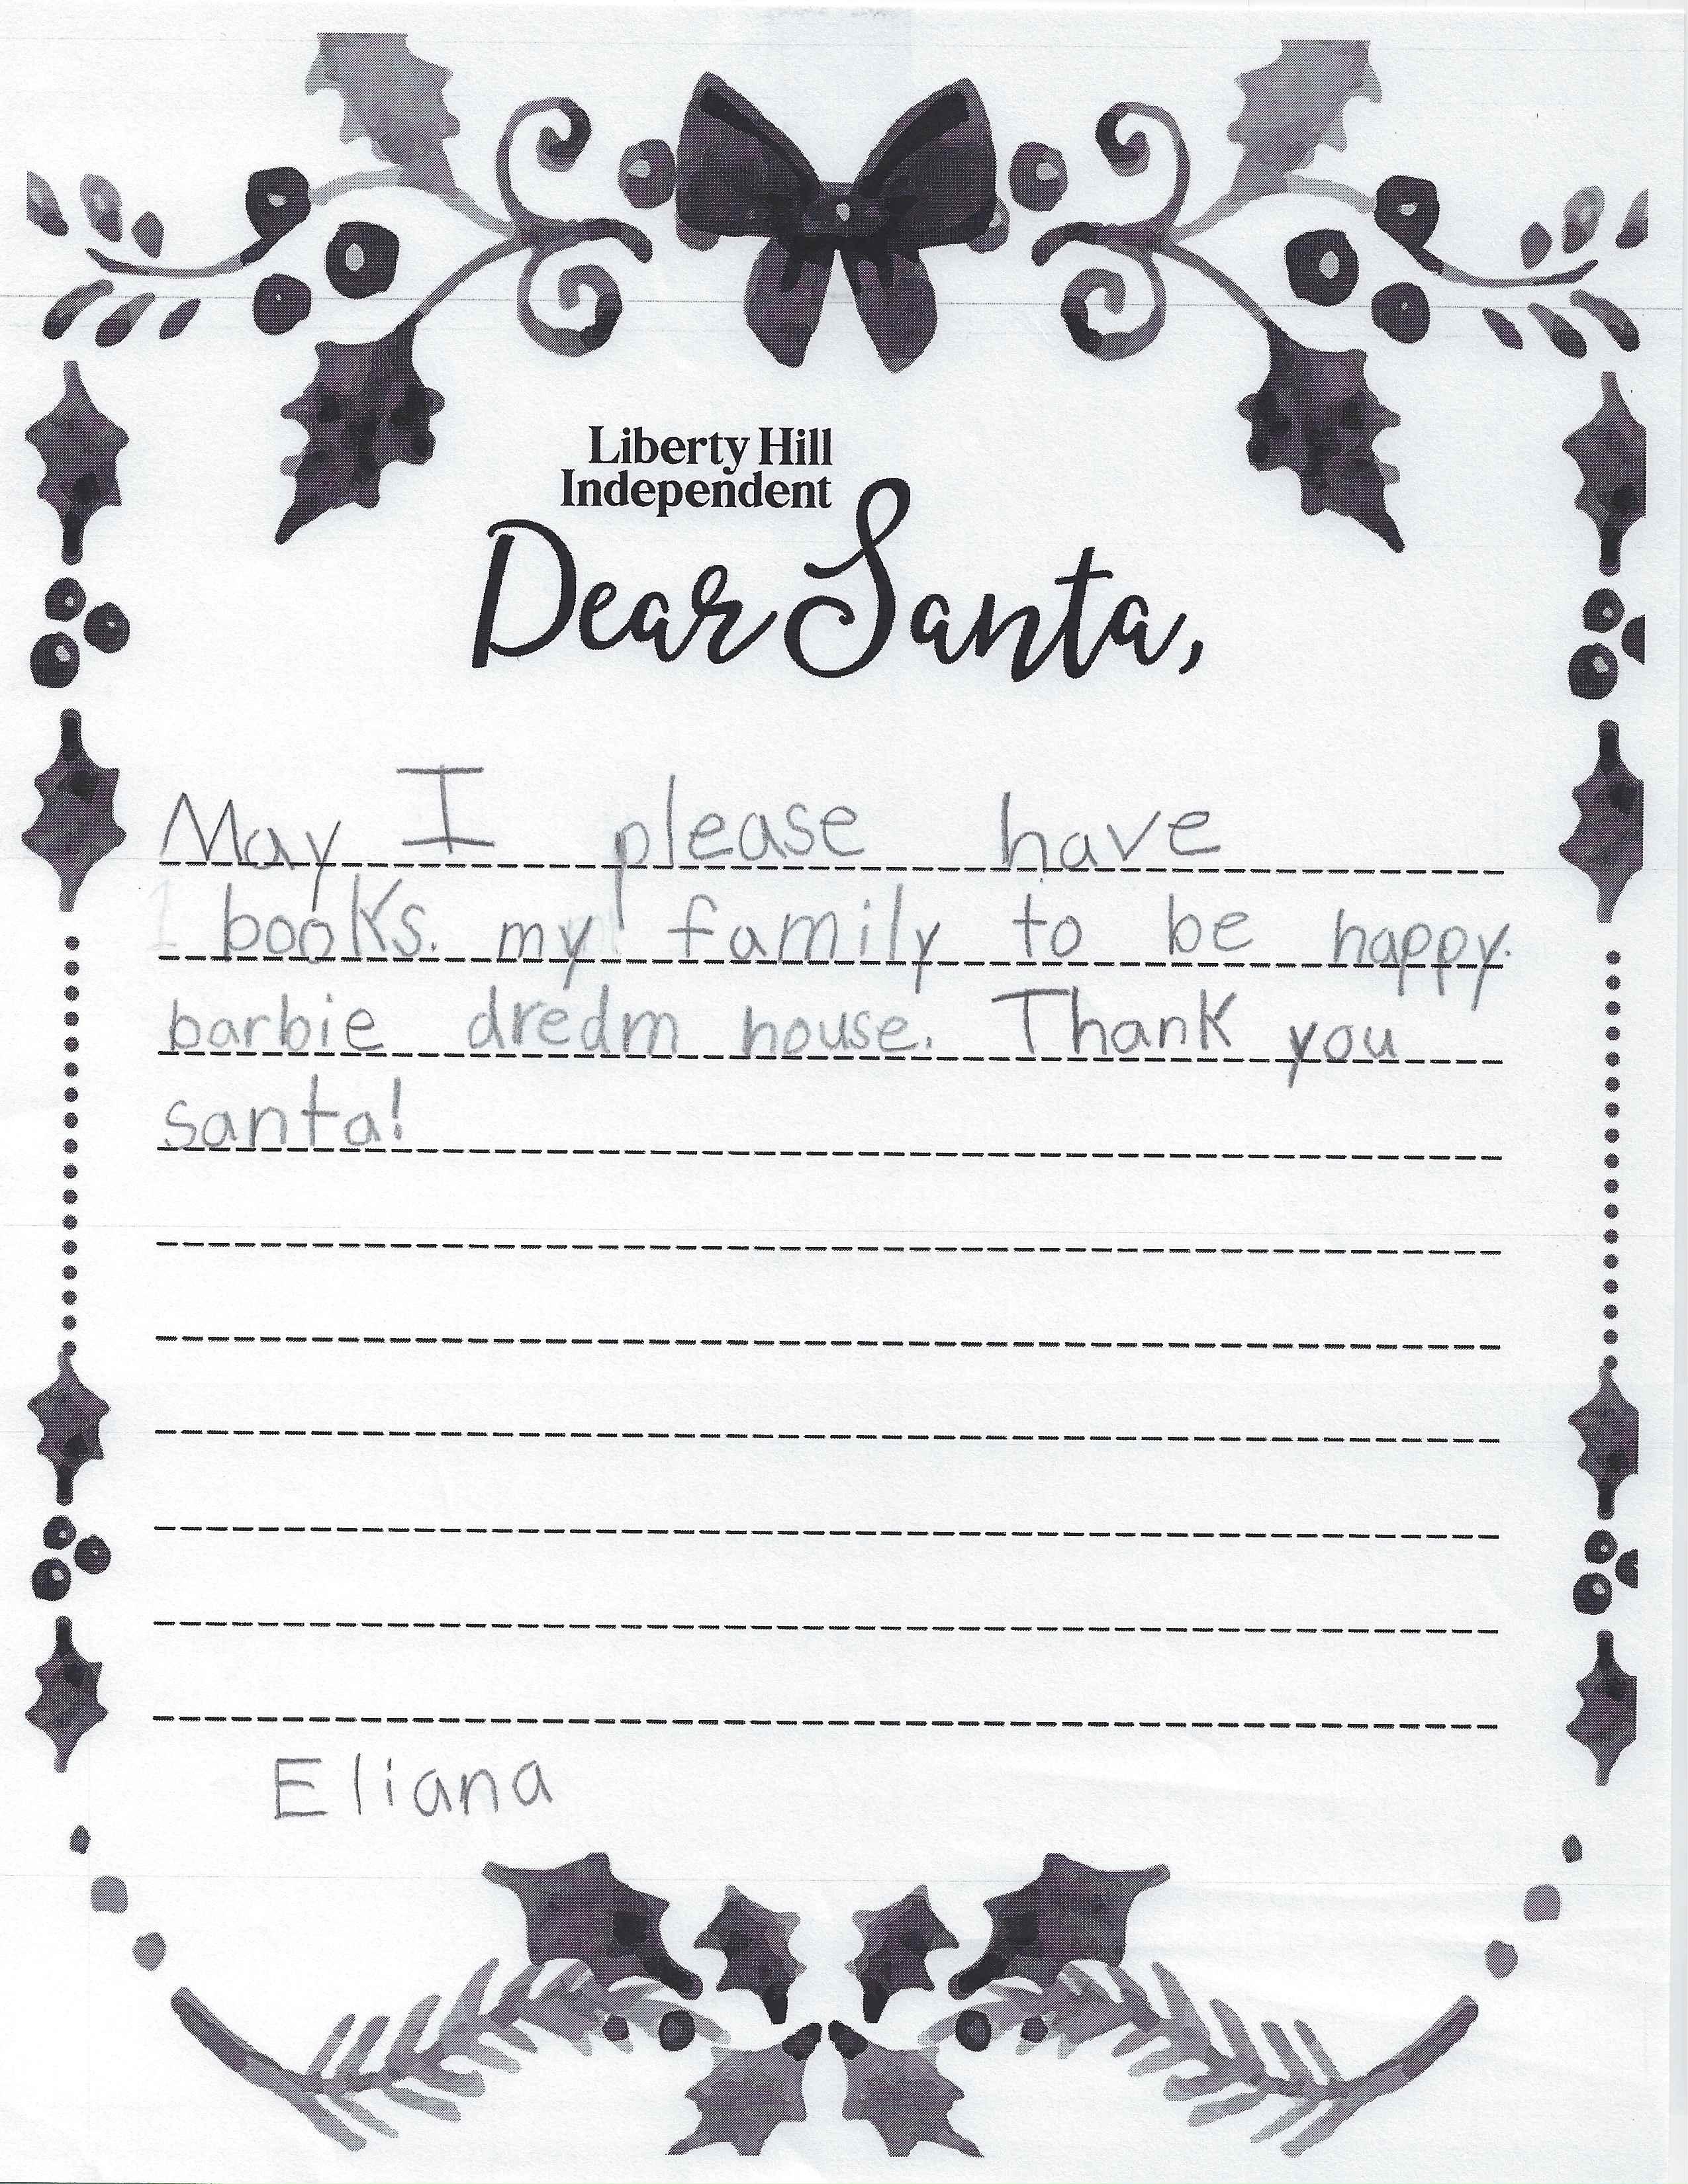 Liberty Hill
Independent
Dear Santa,
May I please have
books. my family to be happy.
barbie dredm house. Thank you
santa!
Eliana